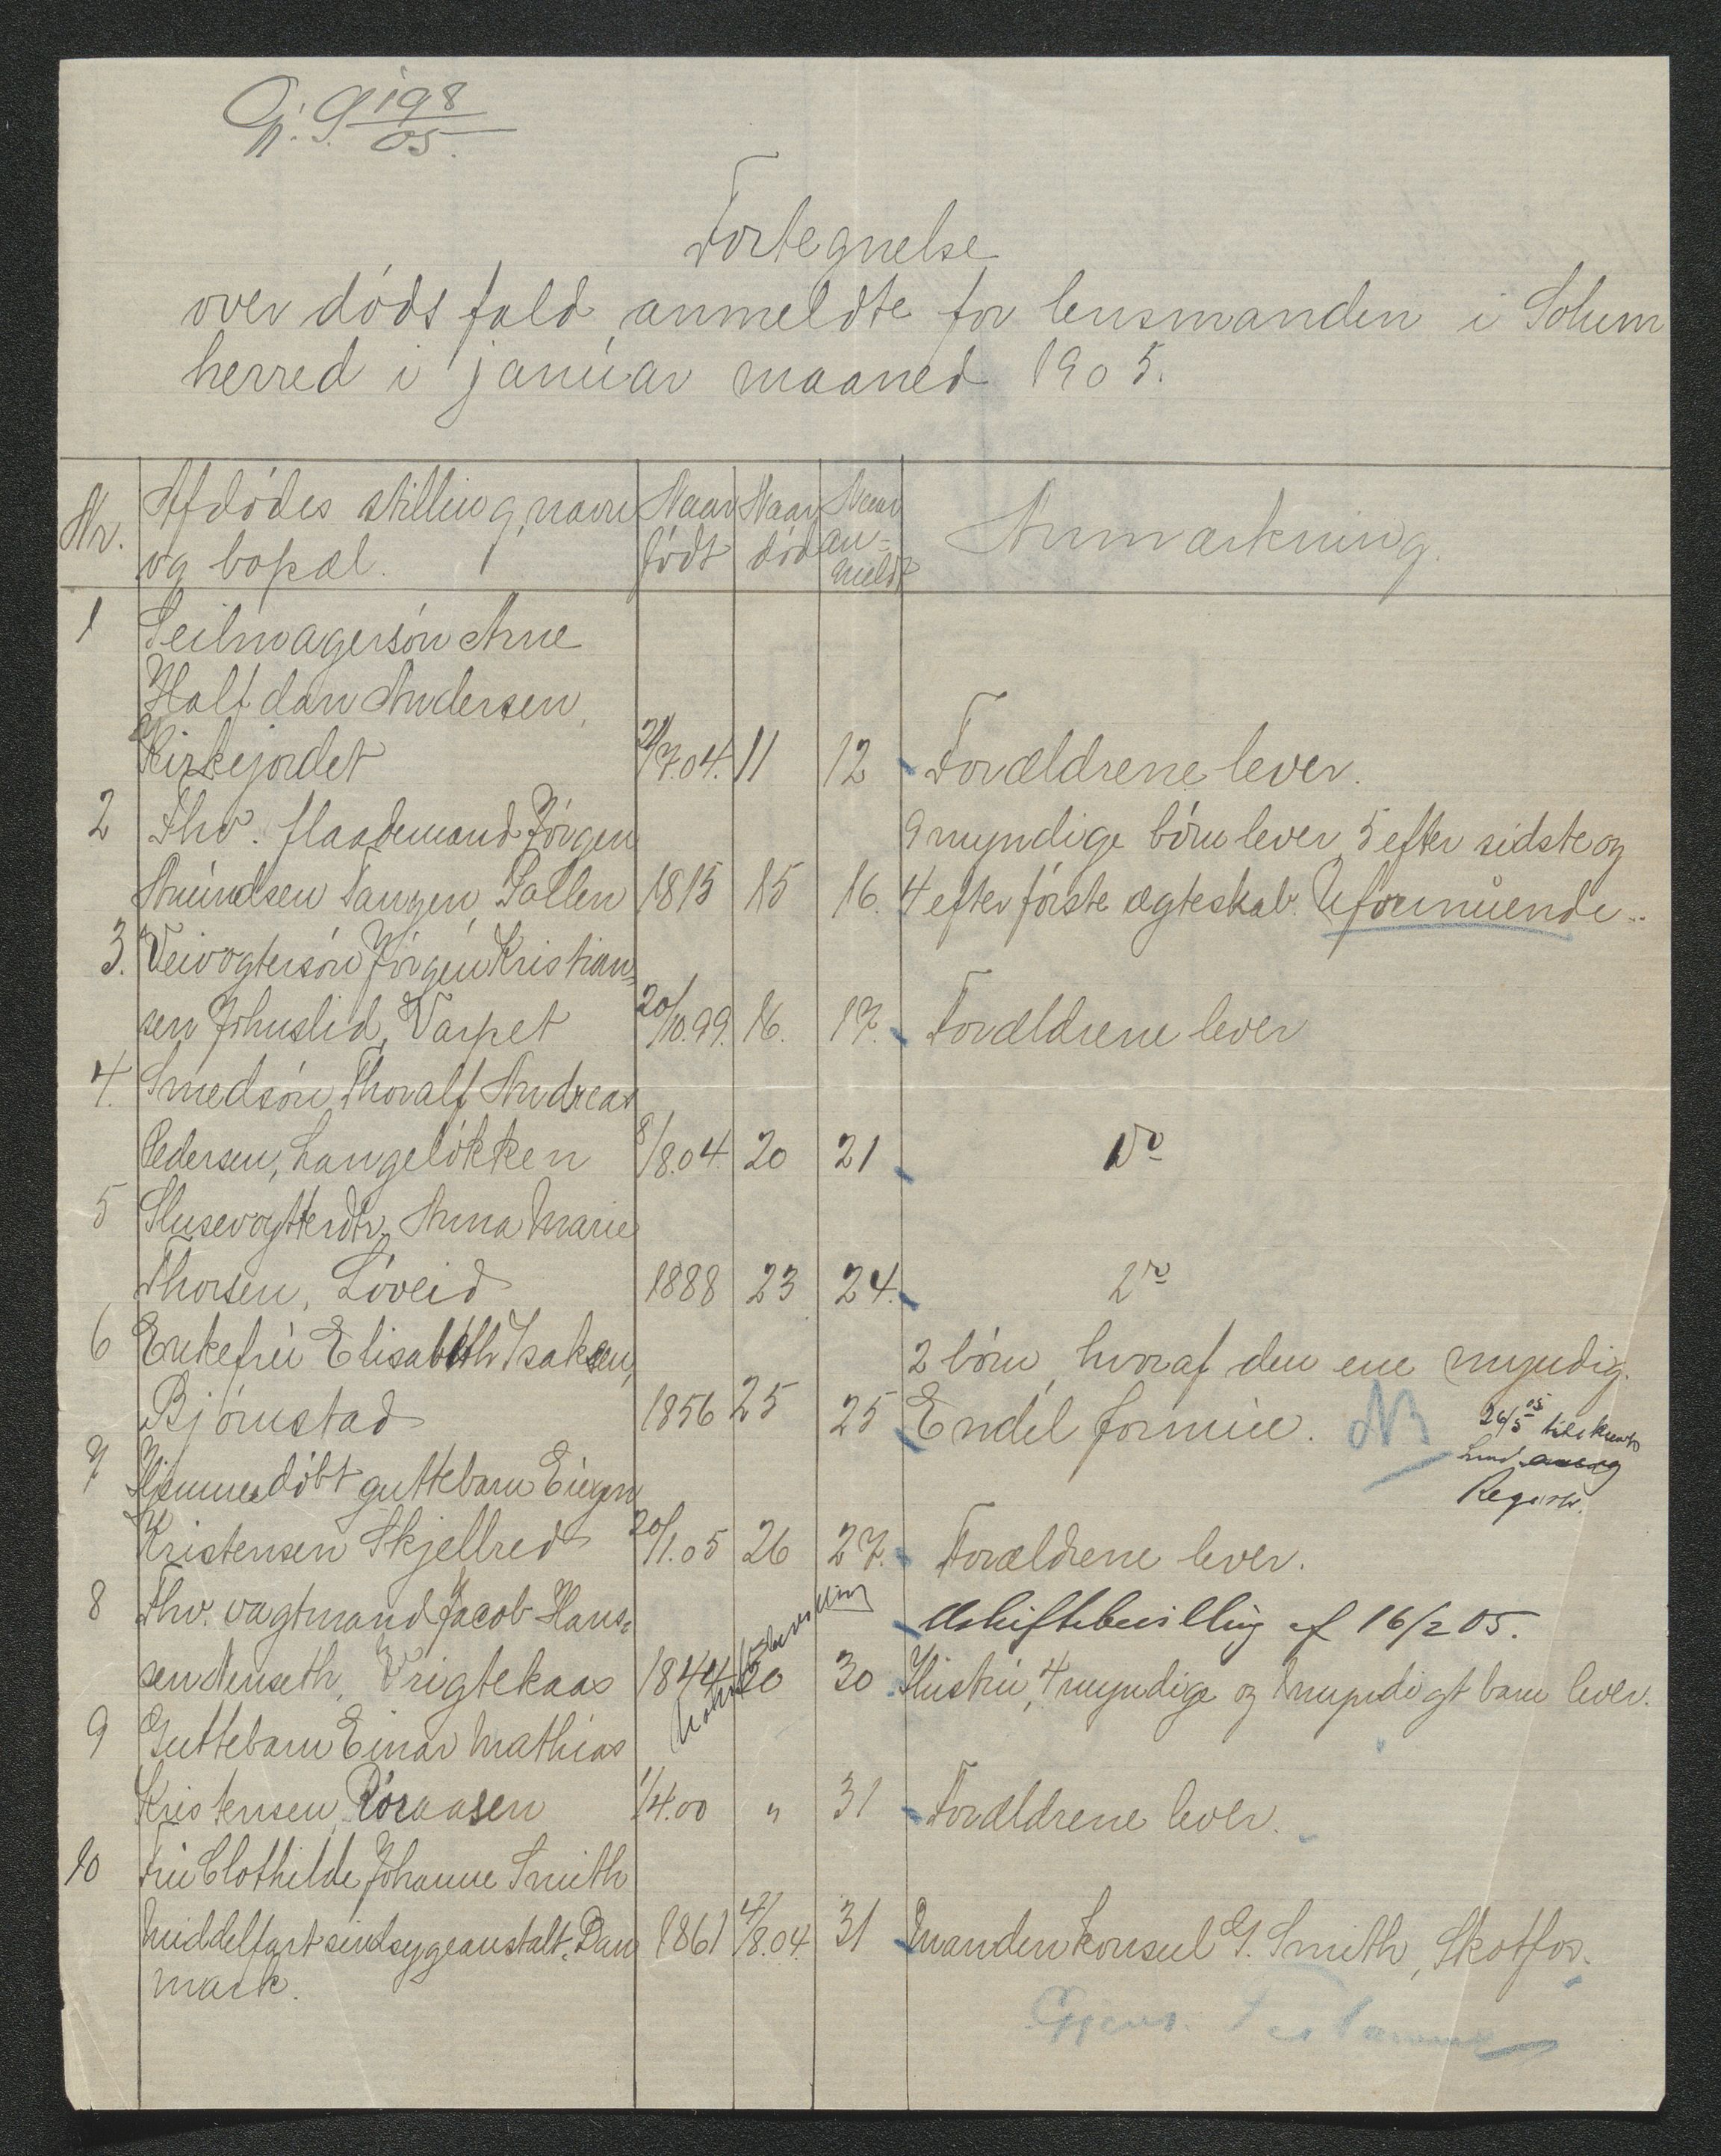 198
05.
Fortegnelse
over dødsfald anmeldte for lensmanden i Solum
herred i januar maaned 1905.
Nr.
Afdødes stilling, navn
og bopæl.
Naar
født
Naar
død
Naar
an-
meldt
Anmærkning.
1 Seilmagersøn Arne
Halfdan Andersen,
Kirkejordet 21/7.04. 11 12 Forældrene lever.
2 Fhv. flaademand Jørgen 9 myndige børn lever, 5 efter sidste og
Amundsen Tangen, Pollen 1815 15 16. 4 efter første ægteskab. Uformuende..
3. Veivogtersøn Jørgen Kristian-
sen Johnslid, Varpet 20/10.99. 16. 17. Forældrene lever
4. Smedsøn Thoralf Andreas
Pedersen, Langeløkken 8/8.04. 20 21 Do
5 Slusevogterdtr. Anna Marie
Thorsen, Løveid 1888 23 24. Do
6 Enkefru Elisabeth Isaksen, 2 børn, hvoraf den ene myndig.
Bjørnstad 1856 25 25 Endel formue. NB 26/5 05
Registr.
7 Hjemmedøbt guttebarn Eugen
Kristensen Skjellred 20/1.05 26 27. Forældrene lever.
8 Fhv. vagtmand Jacob Hans- Uskiftebevilling af 16/2 05.
sen Vrigtekaas 1844 30 30 Hustru, 4 myndige og 1 umyndigt barn lever.
9 Guttebarn Einar Mathias
Kristensen, Røraasen 1/4.00 " 31 Forældrene lever.
10 Fru Clothilde Johanne Smith
Middelfart sindsygeanstalt, Dan 1861 4/8.04. 31 Manden konsul G. Smith, Skotfos.
mark.
Gjens. Testamente